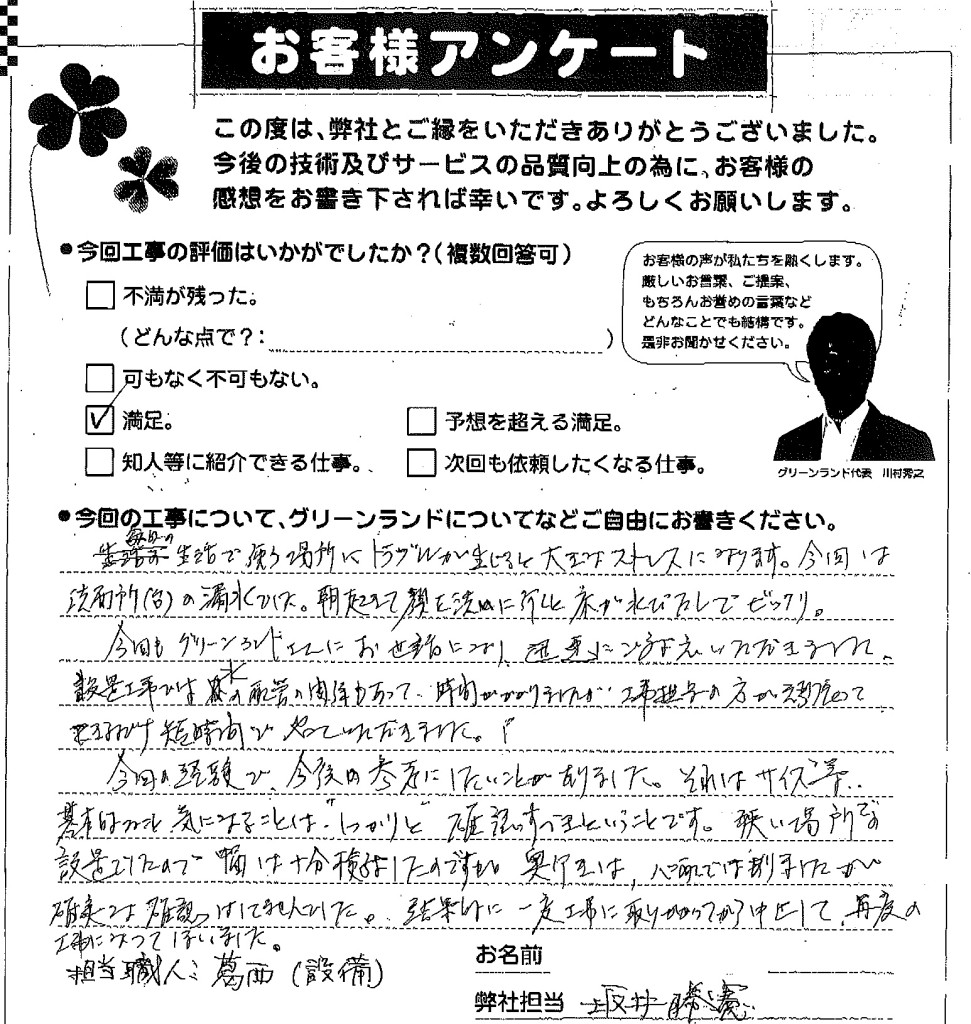 お客様アンケート
この度は、弊社とご縁をいただきありがとうございました。
今後の技術及びサービスの品質向上の為に、お客様の
感想をお書き下されば幸いです。よろしくお願いします。
●今回工事の評価はいかがでしたか？（複数回答可）
お客様の声が私たちを熱くします。
厳しいお言葉、ご提案、
もちろんお誉めの言葉など
どんなことでも結構です。
是非お聞かせください。
不満が残った。
（どんな点で？： ）
可もなく不可もない。
満足。
予想を超える満足。
知人等に紹介できる仕事。
次回も依頼したくなる仕事。
グリーンランド代表 川村秀之
●今回の工事について、グリーンランドについてなどご自由にお書きください。
毎日の
生活で使う場所にトラブルが生じると大きなストレスになります。今回は
洗面所(台)の漏水でした。朝起きて顔を洗いに行くと床が水びたしでビックリ。
今回もグリーンランドさんにお世話になり、迅速に いただきました。
設置工事では 水の配管の関係もあって、時間がかかりましたが、工事担当の方が 頑張って
できるだけ短時間でやっていただきました。
今回の経験で、今後の参考にしたいことがありました。それはサイズ等、
基本的なこと 気になることは、"しっかりと" 確認すべきということです。狭い場所での
設置でしたので 幅は十分検討したのですが 奥行きは、 ではありましたが
確実な確認はしてませんでした。結果的に一度工事に取りかかってから中止して、再度の
工事になってしまいました。
担当職人：葛西（設備）
お名前
弊社担当 坂井 勝憲